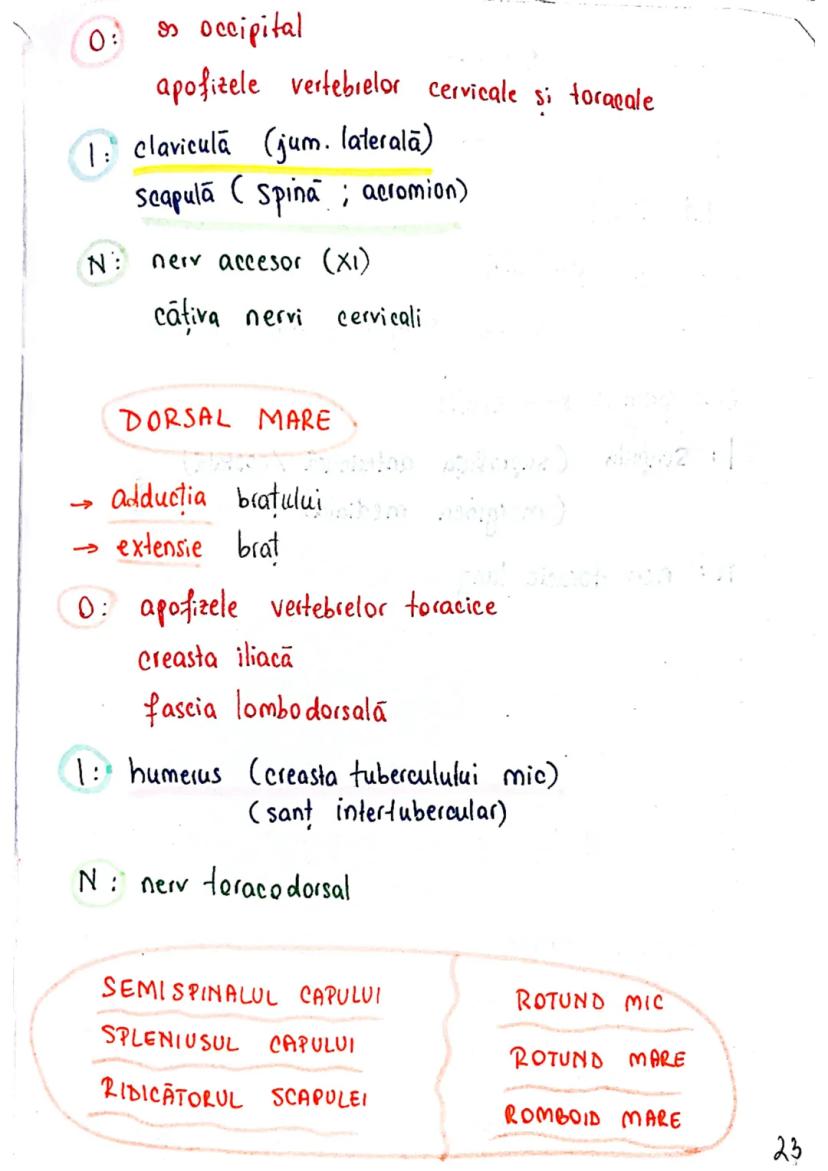 O: os occipital
apofizele vertebrelor cervicale și toracale
I: claviculă (jum. laterală)
scapulă (spină ; acromion)
N: nerv accesor (XI)
câțiva nervi cervicali
DORSAL MARE
→ adducția brațului
→ extensie braț
O: apofizele vertebrelor toracice
creasta iliacă
fascia lombodorsală
I: humerus (creasta tuberculului mic)
(sanț intertubercular)
N: nerv toracodorsal
SEMISPINALUL CAPULUI
SPLENIUSUL CAPULUI
RIDICĂTORUL SCAPULEI
ROTUND MIC
ROTUND MARE
ROMBOID MARE
23